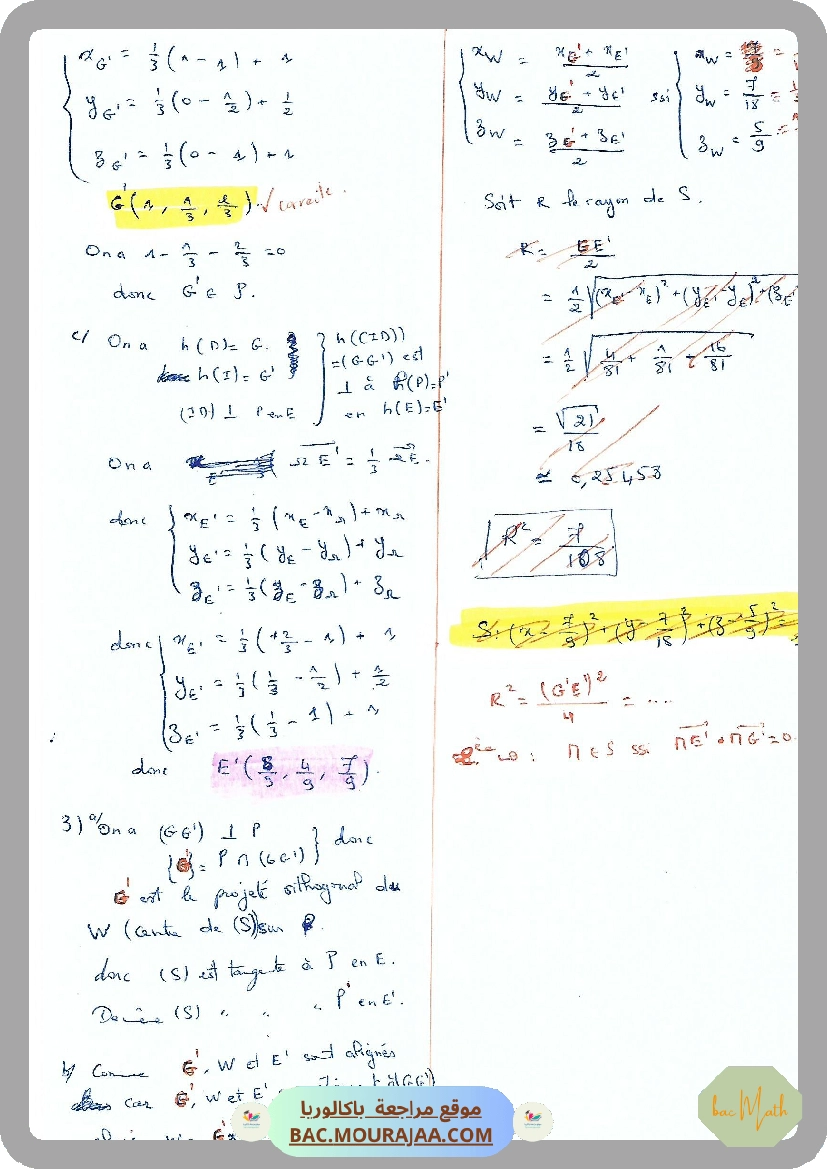 x_G' = 1/3 (1 - 1) + 1
y_G' = 1/3 (0 - 1/2) + 1/2
z_G' = 1/3 (0 - 1) + 1
G'(1, 1/3, 2/3). √ correcte.
On a 1 - 1/3 - 2/3 = 0
donc G' ∈ P.
c/ On a h(D) = G. } h((ID))
h(I) = G' = (GG') est
⊥ à h(P)=P'
(ID) ⊥ P en E en h(E)=E'
On a ΩE' = 1/3 ΩE.
donc { x_E' = 1/3 (x_E - x_Ω) + x_Ω
y_E' = 1/3 (y_E - y_Ω) + y_Ω
z_E' = 1/3 (z_E - z_Ω) + z_Ω
donc { x_E' = 1/3 (2/3 - 1) + 1
y_E' = 1/3 (1/3 - 1/2) + 1/2
z_E' = 1/3 (1/3 - 1) + 1
donc E'(8/9, 4/9, 7/9).
3) a/ On a (GG') ⊥ P
{G'} = P ∩ (GG') } donc
G' est le projeté orthogonal du
W (centre de (S)) sur P.
donc (S) est tangente à P en E.
De même (S) " " " P' en E'.
b/ Comme G', W et E' sont alignés
car G', W et E'
x_W = (x_G' + x_E')/2
y_W = (y_G' + y_E')/2 ssi y_W = 7/18 =
z_W = (z_G' + z_E')/2 z_W = 5/9 =
Soit R le rayon de S.
R = EE'/2
= 1/2 √((x_E' - x_E)² + (y_E' - y_E)² + (z_E'
= 1/2 √(4/81 + 1/81 + 16/81)
= √21/18
≃ 0,25458
R² = 7/108
S: (x - 7/9)² + (y - 7/18)² + (z - 5/9)² =
R² = (G'E')²/4 = ....
M ∈ S ssi ME' • MG' = 0
موقع مراجعة باكالوريا
BAC.MOURAJAA.COM
bac Math